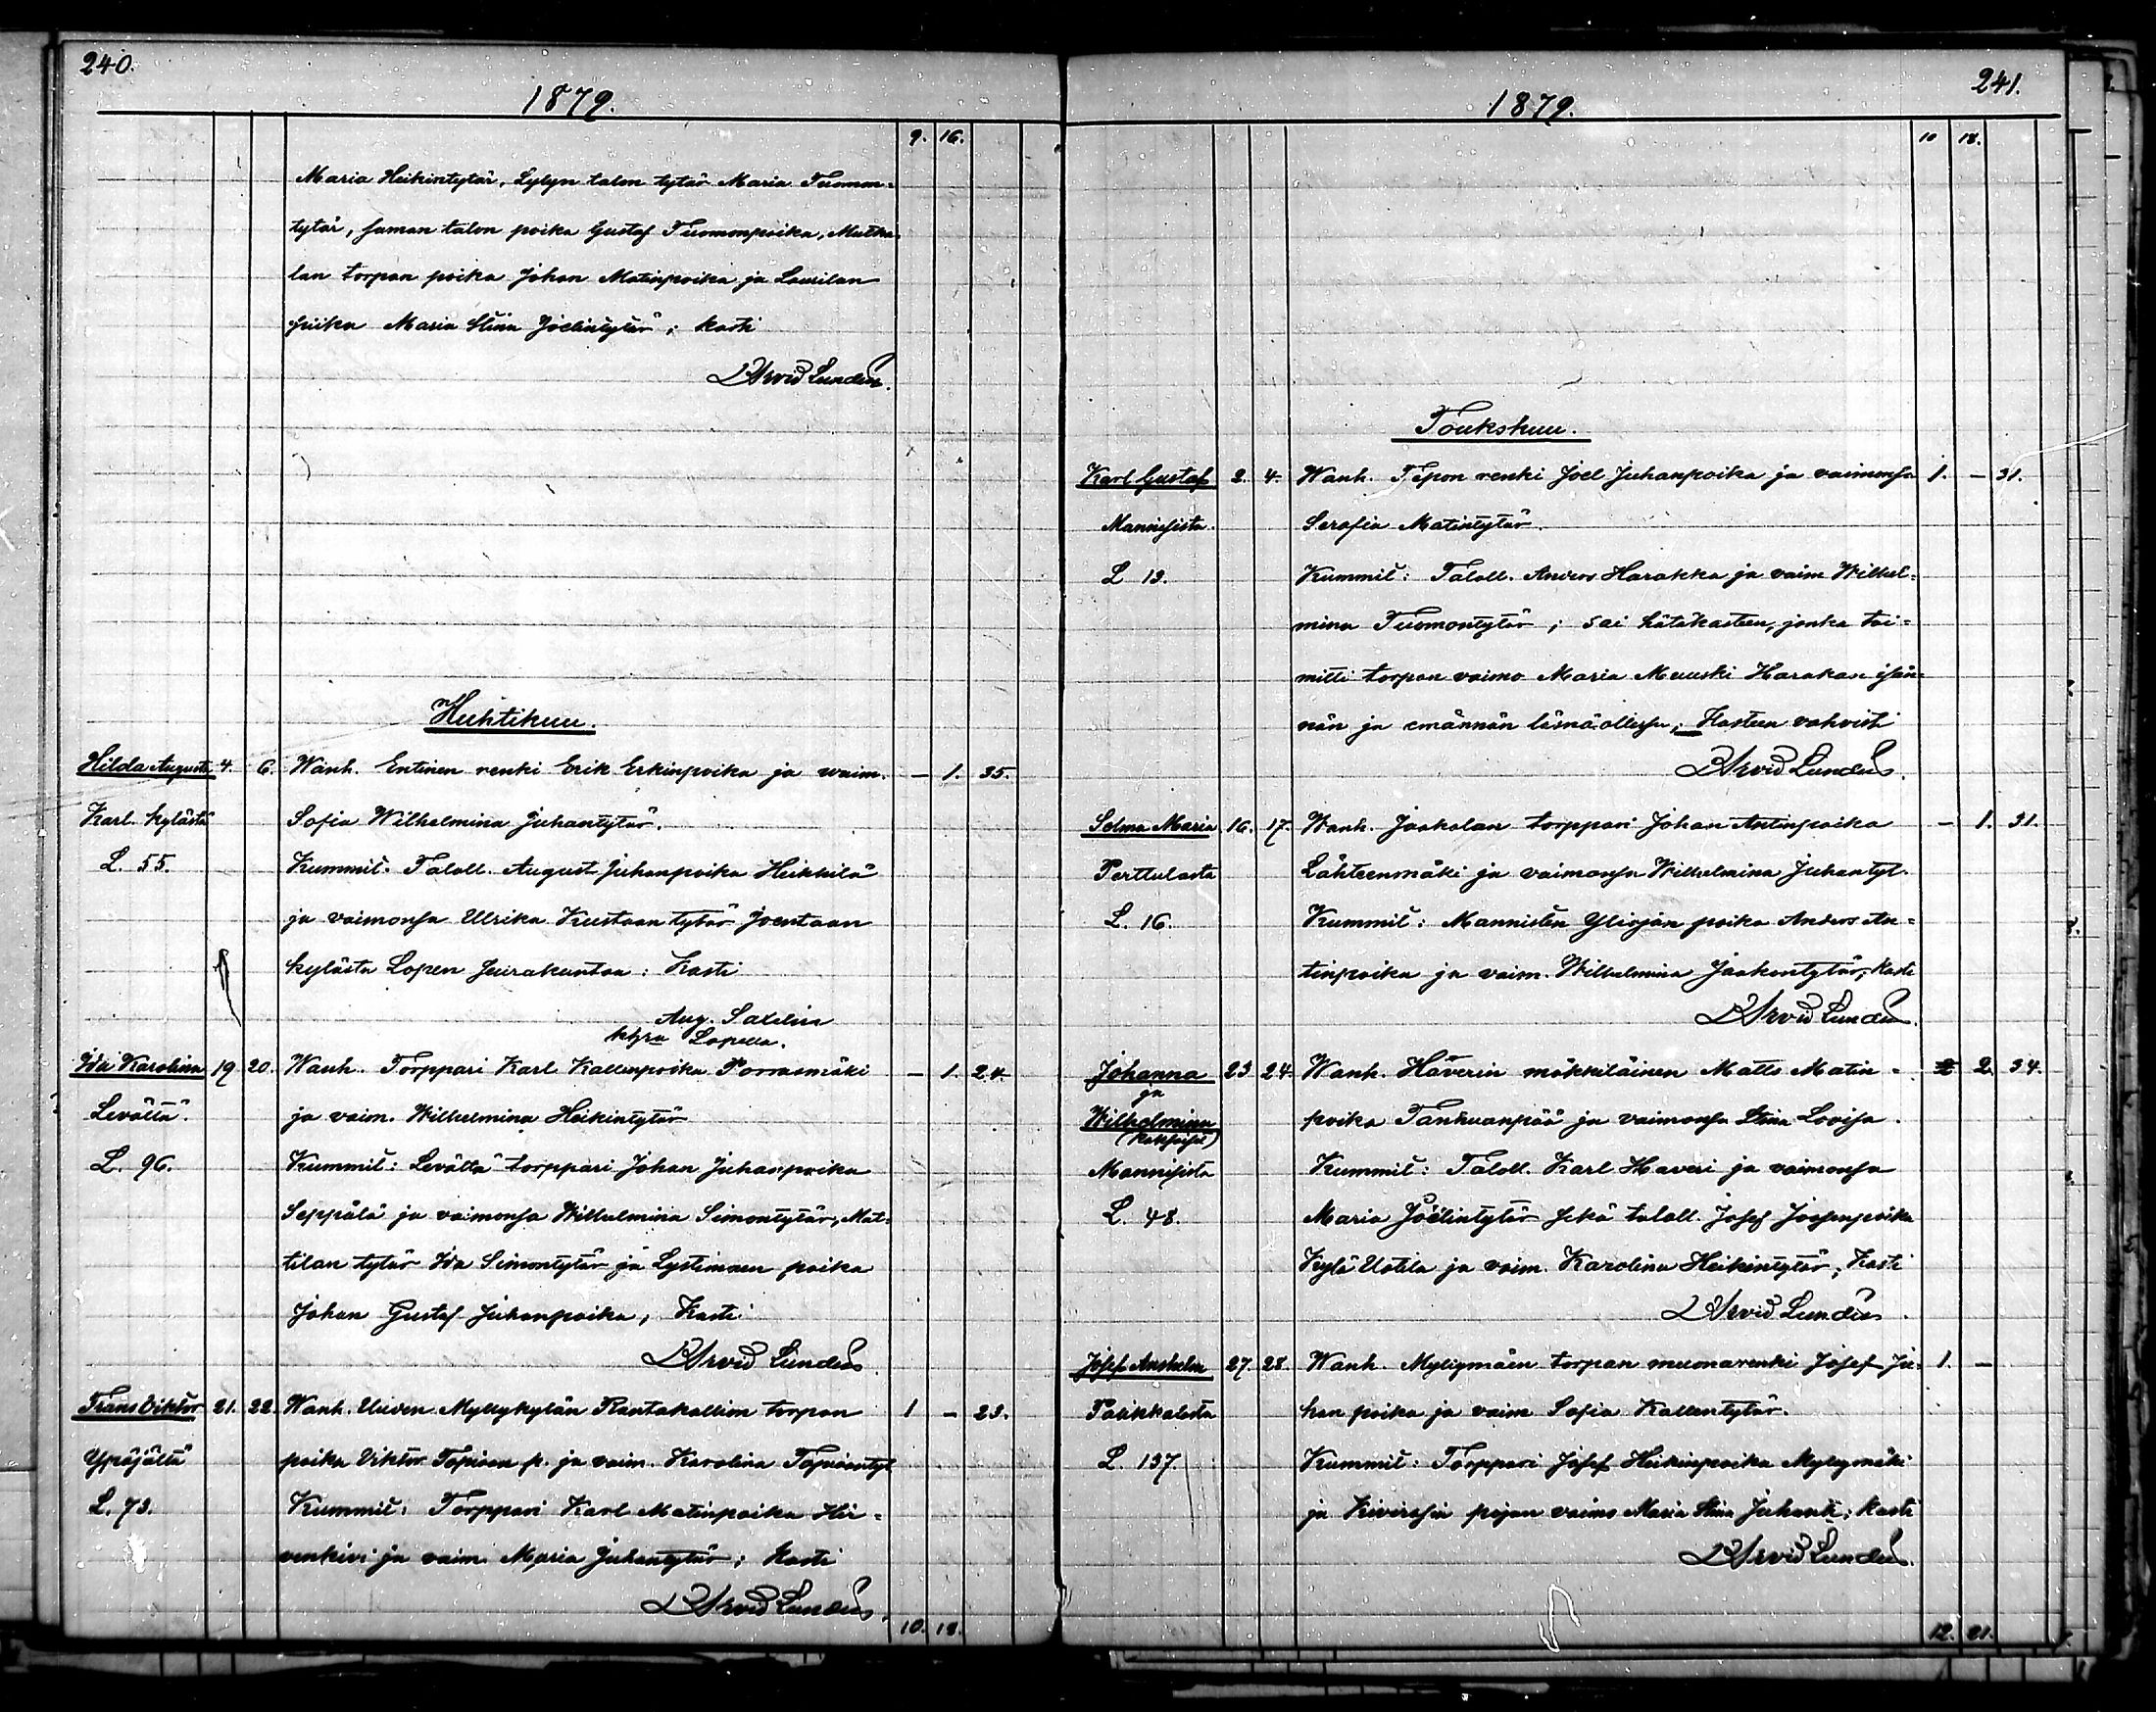 240.
1879.
9. 16.
Maria Heikintytär, Lylyn talon tytär Maria Tuomon-
tytär, saman talon poika Gustaf Tuomonpoika, Matka-
lan torpan poika Johan Matinpoika ja Laurilan
piika Maria Stina Joelintytär; kasti
Arvid Lundus.
Huhtikuu.
Hilda Augusta 4. 6. Wanh. Entinen renki Erik Erkinpoika ja waim. — 1. 35.
Karl. kylästä Sofia Wilhelmina Juhantytär.
L. 55. Kummit. Taloll. August Juhanpoika Heikkilä
ja vaimonsa Ulrika Kustaantytär Joentaan
kylästä Lopen seurakuntaa: Kasti
Aug. Saxelin
Lopella.
Ida Karolina 19 20. Wanh. Torppari Karl Kallenpoika Porrasmäki — 1. 24.
Levältä. ja vaim. Wilhelmina Heikintytär
L. 96. Kummit: Levältä torppari Johan Juhanpoika
Seppälä ja vaimonsa Wilhelmina Simontytär, Mat-
tilan tytär Ida Simontytär ja Lystimäen poika
Johan Gustaf Juhanpoika, Kasti
Arvid Lundus
Frans Viktor 21. 22. Wanh. Uuden Myllykylän Rautakallion torpan 1 — 23.
Ypäjältä poika Viktor Tapioan p. ja vaim. Karolina Tapioantyt.
L. 73. Kummit: Torppari Karl Matinpoika Hir-
venkivi ja vaim. Maria Juhantytär; Kasti
Arvid Lundus.
10. 18.
241.
1879.
10 18.
Toukskuu.
Karl Gustaf 2. 4. Wanh. Tepon renki Joel Juhanpoika ja vaimonsa 1. — 31.
Mannisista. Serafia Matintytär.
L 13. Kummit: Taloll. Anders Harakka ja vaim Wilhel-
mina Tuomontytär; sai hätäkasteen, jonka toi-
mitti torpan vaimo Maria Muuski Harakan isän-
nän ja emännän läsnäollessa; Kasteen vahvisti
Arvid Lundus.
Selma Maria 16. 17. Wanh. Jaakolan torppari Johan Antinpoika — 1. 31.
Perttulasta Lähteenmäki ja vaimonsa Wilhelmina Juhantyt.
L. 16. Kummit: Mannisten Ylisjän poika Anders An-
tinpoika ja vaim. Wilhelmina Jaakontytär; Kasti
Arvid Lundus.
Johanna 23 24. Wanh. Häverin mökkiläinen Matts Matin- 2 2. 34.
ja
Wilhelmina poika Tanhuanpää ja vaimonsa Stina Lovisa.
(kaksoiset)
Mannisista Kummit: Taloll. Karl Haveri ja vaimonsa
L. 48. Maria Joelintytär sekä taloll. Josef Josefinpoika
Kylä Uotila ja vaim. Karolina Heikintytär; Kasti
Arvid Lundus.
Josef Anshelm 27. 28. Wanh. Myllymäen torpan muonarenki Josef Ju- 1. —
Palikkalasta han poika ja vaim Sofia Kallentytär.
L. 137. Kummit: Torppari Josef Heikinpoika Myllymäki
ja pojan vaimo Maria Stina Juhant.; kasti
Arvid Lundus.
12. 21.